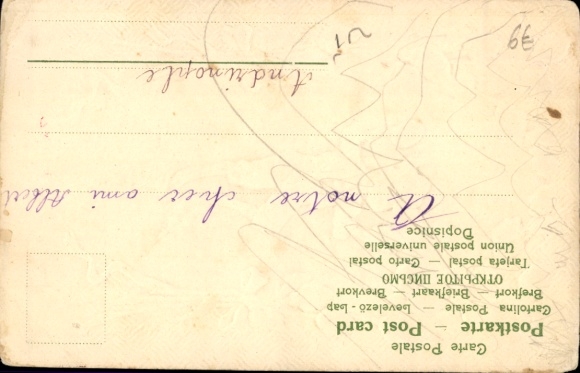 Carte Postale
Postkarte — Post card
Cartolina Postale — Levelező-Lap
Brefkort — Briefkaart — Brevkort
ОТКРЫТОЕ ПИСЬМО
Tarjeta postal — Carto postal
Union postale universelle
Dopisnice
A notre cher ami Albert
Andrinople
39